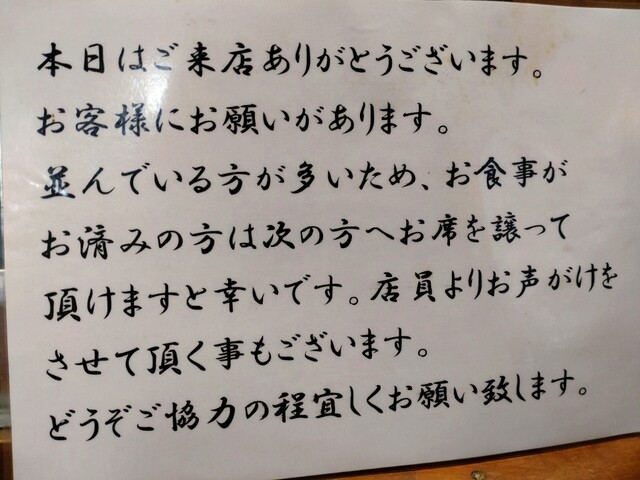 本日はご来店ありがとうございます。
お客様にお願いがあります。
並んでいる方が多いため、お食事が
お済みの方は次の方へお席を譲って
頂けますと幸いです。店員よりお声がけを
させて頂く事もございます。
どうぞご協力の程宜しくお願い致します。